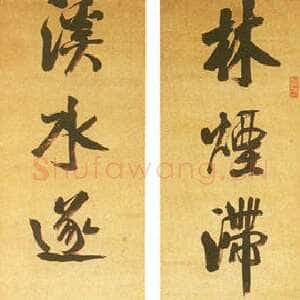 林煙滯
溪水遂
Shufawang